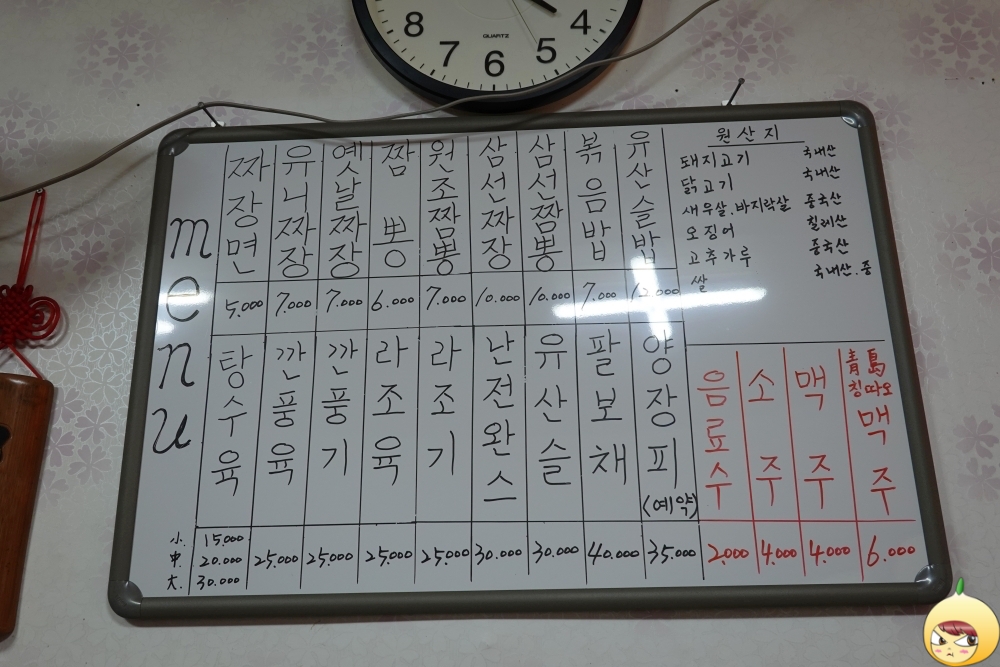 8 7 6 5 4
QUARTZ
menu
짜장면 유니짜장 옛날짜장 짬뽕 원조짬뽕 삼선짜장 삼선짬뽕 볶음밥 유산슬밥
5.000 7.000 7.000 6.000 7.000 10.000 10.000 7.000
원산지
돼지고기 국내산
닭고기 국내산
새우살.바지락살 중국산
오징어 칠레산
고추가루 중국산
쌀 국내산.중
탕수육 깐풍육 깐풍기 라조육 라조기 난전완스 유산슬 팔보채 양장피 (예약)
小 15.000
中 20.000
大 30.000
25.000 25.000 25.000 25.000 30.000 30.000 40.000 35.000
음료수 소주 맥주 青島 칭따오 맥주
2.000 4.000 4.000 6.000